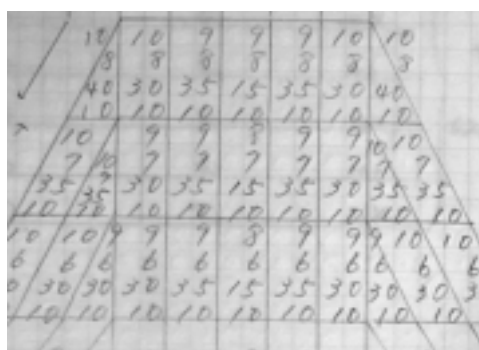 10 10 9 9 9 10 10
8 8 8 8 8 8 8
40 30 35 15 35 30 40
10 10 10 10 10 10 10
10 9 9 8 9 9 10 10
7 10 7 7 7 7 7 7 7
35 35 30 35 15 35 30 35 35
10 10 10 10 10 10 10 10
10 10 9 9 9 8 9 9 9 10 10
6 6 6 6 6 6 6 6 6 6
30 30 30 35 15 35 30 30 30
10 10 10 10 10 10 10 10 10